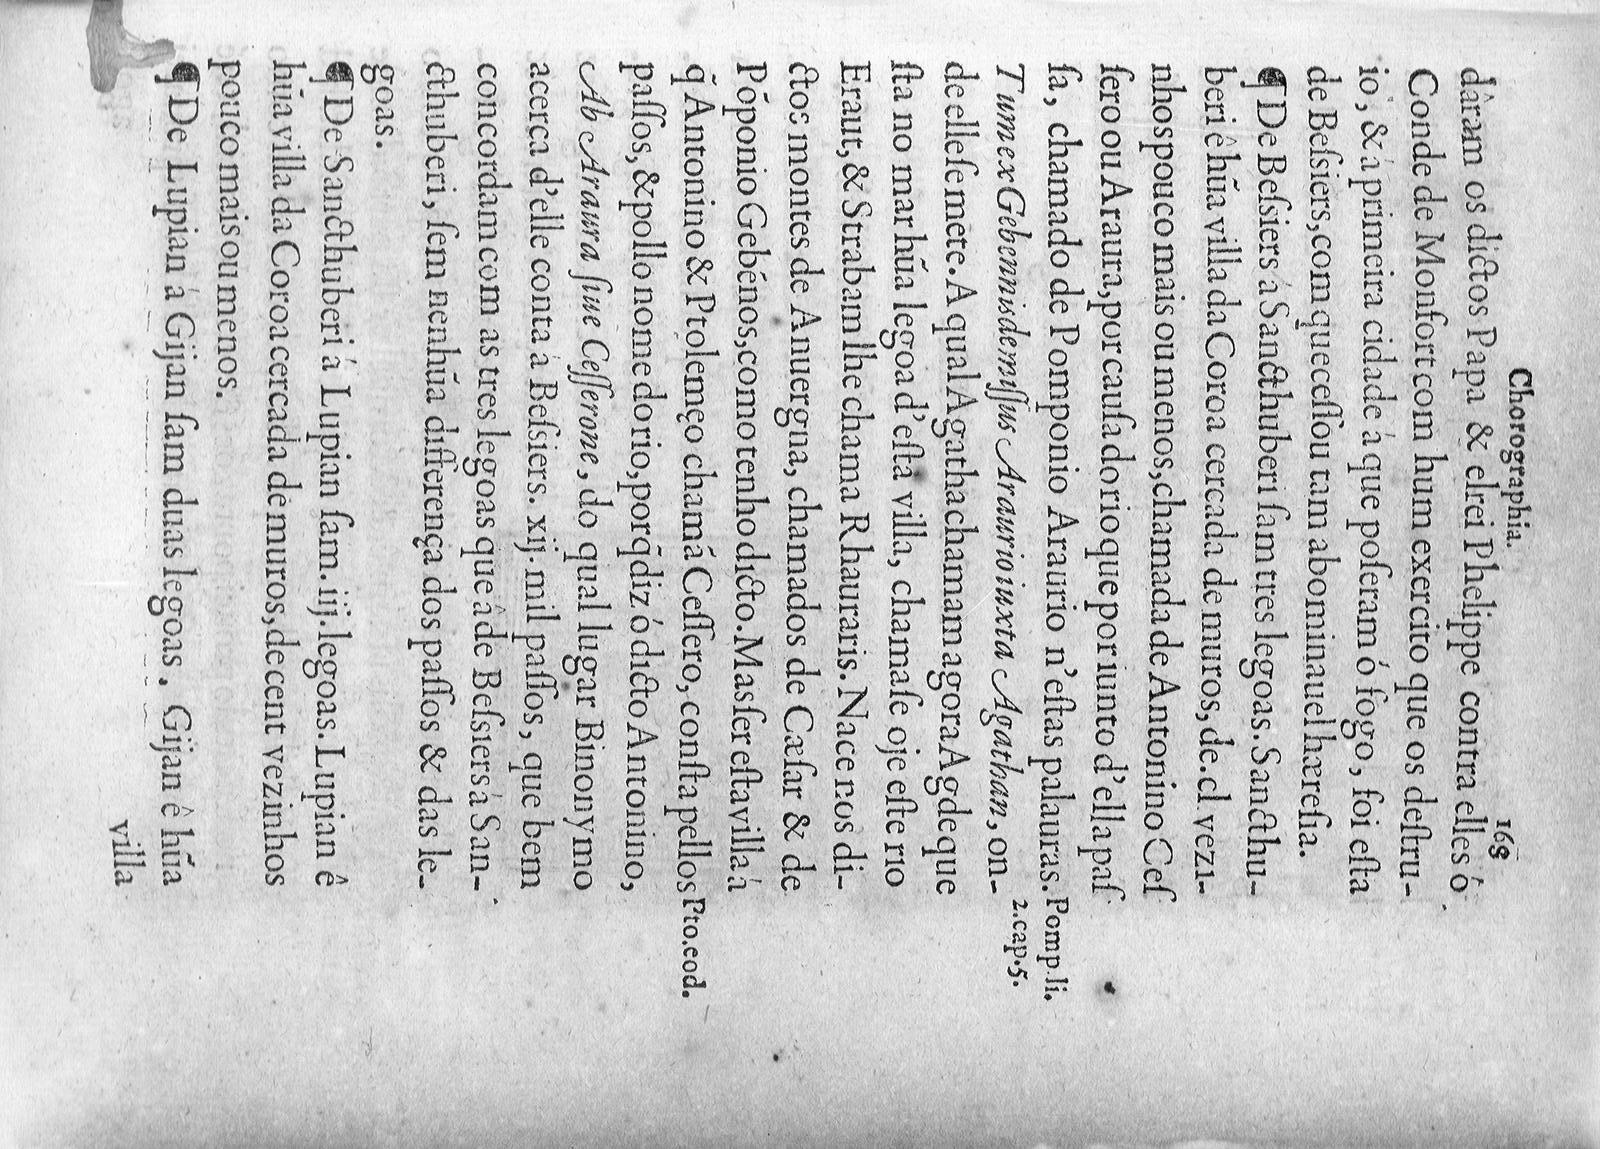 Chorographia. 168
dâram os dictos Papa & elrei Phelippe contra elles ó
Conde de Monfort com hum exercito que os deſtru-
io, & á primeira cidade á que poſeram ó fogo, foi eſta
de Beſsiers, com que ceſſou tam abominauel hæreſia.
¶ De Beſsiers á Sancthuberi ſam tres legoas. Sancthu-
beri ê hũa villa da Coroa cercada de muros, de. cl vezi-
nhos pouco mais ou menos, chamada de Antonino Ceſ
ſero ou Araura, por cauſa do rio que por iunto d'ella paſ
ſa, chamado de Pomponio Araurio n'eſtas palauras. Pomp. li.
Tum ex Gebennis demiſſus Araurio iuxta Agathan, on- 2. cap. 5.
de elle ſe mete. A qual Agatha chamam agora Agde que
ſta no mar hũa legoa d'eſta villa, chamaſe oje eſte rio
Eraut, & Strabam lhe chama Rhauraris. Nace nos di-
ctos montes de Anuergna, chamados de Cæſar & de
Põponio Gebénos, como tenho dicto. Mas ſer eſta villa á
q̃ Antonino & Ptolemęo chamã Ceſſero, conſta pellos Pto. eod.
paſſos, & pollo nome do rio, porq̃ diz ó dicto Antonino,
Ab Araura ſiue Ceſſerone, do qual lugar Binonymo
acerca d'elle conta á Beſsiers. xij. mil paſſos, que bem
concordam com as tres legoas que â de Beſsiers á San-
cthuberi, ſem nenhũa differença dos paſſos & das le-
goas.
¶ De Sancthuberi á Lupian ſam. iij. legoas. Lupian ê
hũa villa da Coroa cercada de muros, de cent vezinhos
pouco mais ou menos.
¶ De Lupian á Gijan ſam duas legoas. Gijan ê hũa
villa